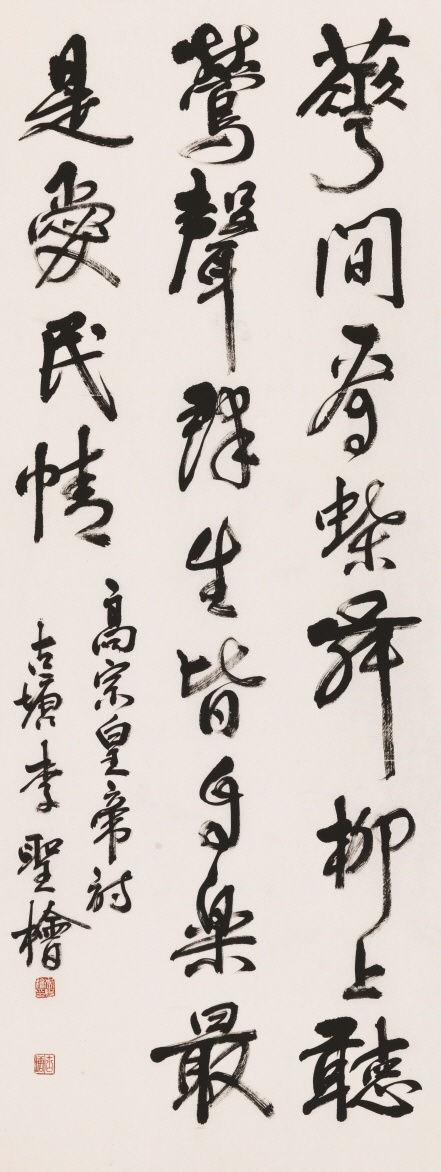 華間看蝶舞柳上聽
鶯聲群生皆自樂最
是愛民情
高宗皇帝詩
古塘李聖檜